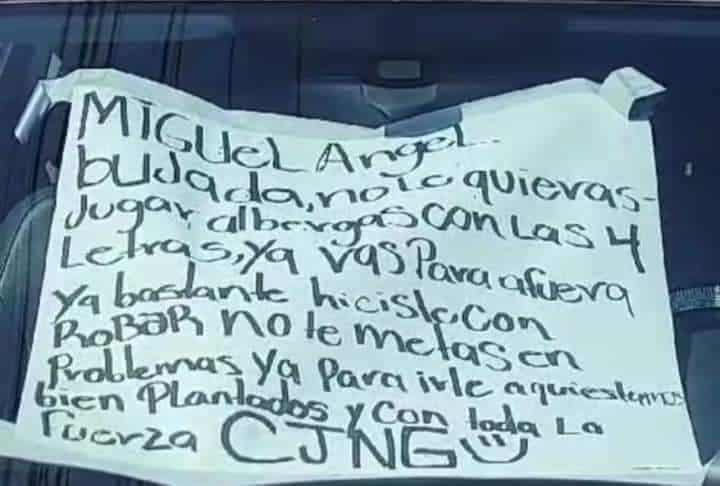 MIGUEL Angel..
bujada, no te quieras-
Jugar al bergas con Las 4
Letras, ya vas Para afuera
Ya bastante hiciste con
ROBAR no te metas en
Problemas Ya Para irte aqui estamos
bien Plantados y con toda La
fuerza CJNG